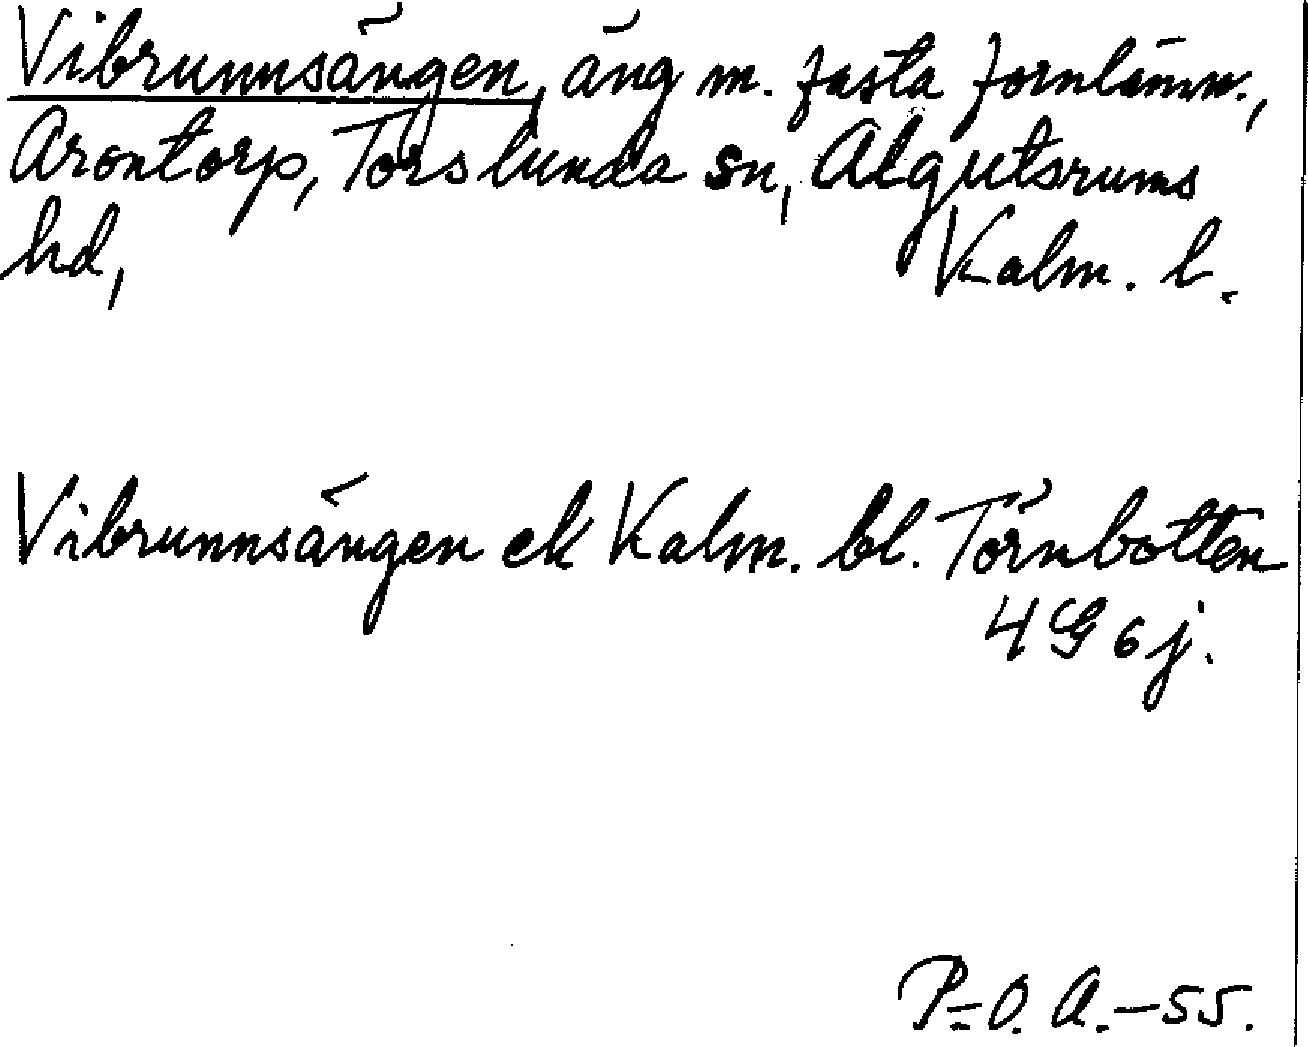 Vibrunnsängen, äng m. fasta fornlämn.,
Arontorp, Torslunda sn, Algutsrums
hd, Kalm. l.
Vibrunnsängen ek Kalm. bl. Törnbotten
4G6j.
P-O. A.-55.